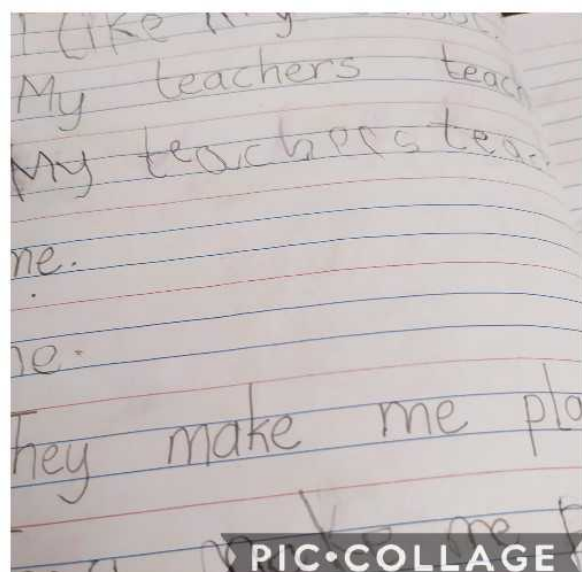 I like my
My teachers teach
My teachers teac
me.
me.
They make me pla
make me p
PIC•COLLAGE